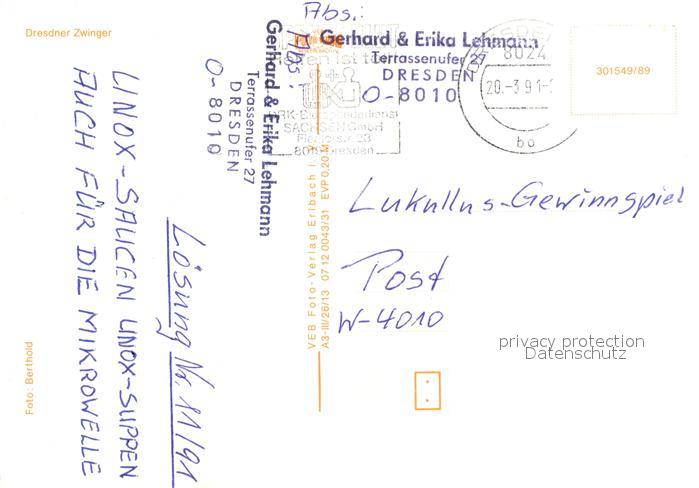 Dresdner Zwinger
UNOX-SAUCEN UNOX-SUPPEN
AUCH FÜR DIE MIKROWELLE
Lösung Nr. 11/91
Foto: Berthold
Abs.:
Gerhard & Erika Lehmann
Terrassenufer 27
DRESDEN
O-8010
Abs.:
Gerhard & Erika Lehmann
Terrassenufer 27
DRESDEN
O-8010
SACHSEN GmbH
8019 Dresden
8024
20.-3.91-
bo
301549/89
VEB Foto-Verlag Erlbach
A3-III/26/13 07 12 0043/31 EVP 0,20 M
Lukullus-Gewinnspiel
Post
W-4010
privacy protection
Datenschutz